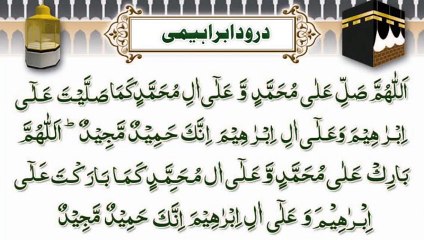 درود ابراہیمی
اَللّٰهُمَّ صَلِّ عَلٰى مُحَمَّدٍ وَّ عَلٰٓى اٰلِ مُحَمَّدٍ كَمَا صَلَّيْتَ عَلٰٓى
اِبْرٰهِيْمَ وَعَلٰٓى اٰلِ اِبْرٰهِيْمَ اِنَّكَ حَمِيْدٌ مَّجِيْدٌ ؕ اَللّٰهُمَّ
بَارِكْ عَلٰى مُحَمَّدٍ وَّ عَلٰٓى اٰلِ مُحَمَّدٍ كَمَا بَارَكْتَ عَلٰٓى
اِبْرٰهِيْمَ وَ عَلٰٓى اٰلِ اِبْرٰهِيْمَ اِنَّكَ حَمِيْدٌ مَّجِيْدٌ